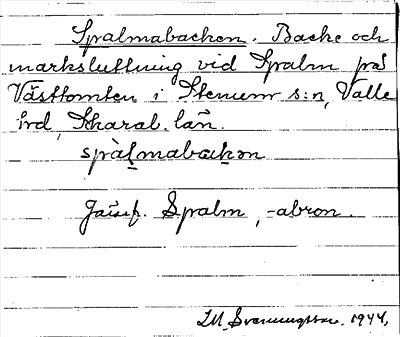 Spalmabacken. Backe och
marksluttning vid Spalm på
Västtomten i Stenum s:n, Valle
hrd, Skarab. län.
spàlmabackən
Jämf. Spalm, -abron.
Svenningsson. 1944.